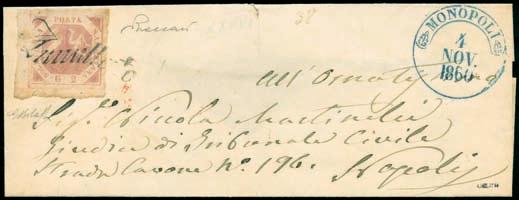 POSTA
Annullato
G 2
MONOPOLI
4
NOV.
1860
38
All'Ornatis
Sig. Niccola Martinelli
Giudice di Tribunale Civile
Strada Cavone N.º 196.
Napoli